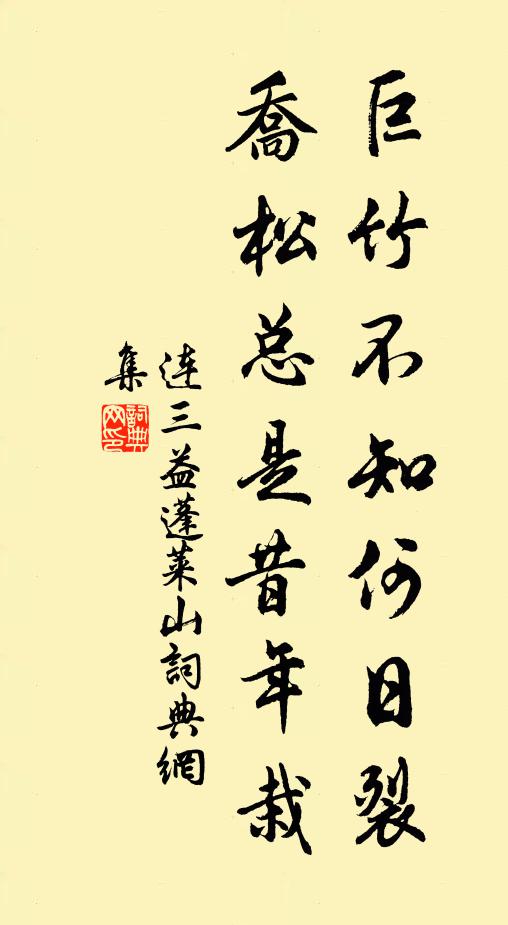 巨竹不知何日裂
喬松总是昔年栽
連三益蓬萊山詞典網
集
詞典
网印